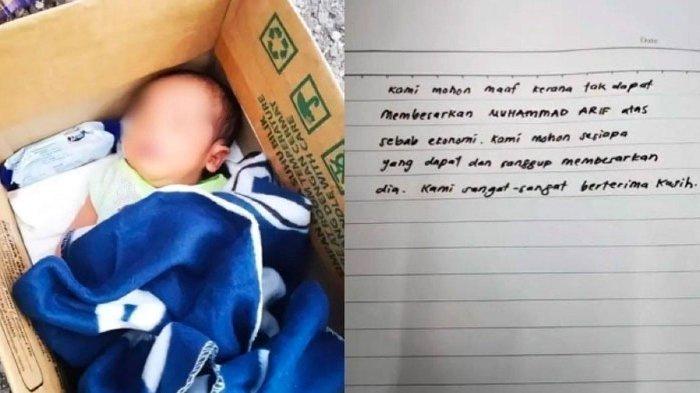 Date
Kami mohon maaf kerana tak dapat
membesarkan MUHAMMAD ARIF atas
sebab ekonomi. Kami mohon sesiapa
yang dapat dan sanggup membesarkan
dia. Kami sangat-sangat berterima kasih.
DENGAN CERMAT
WITH CARE